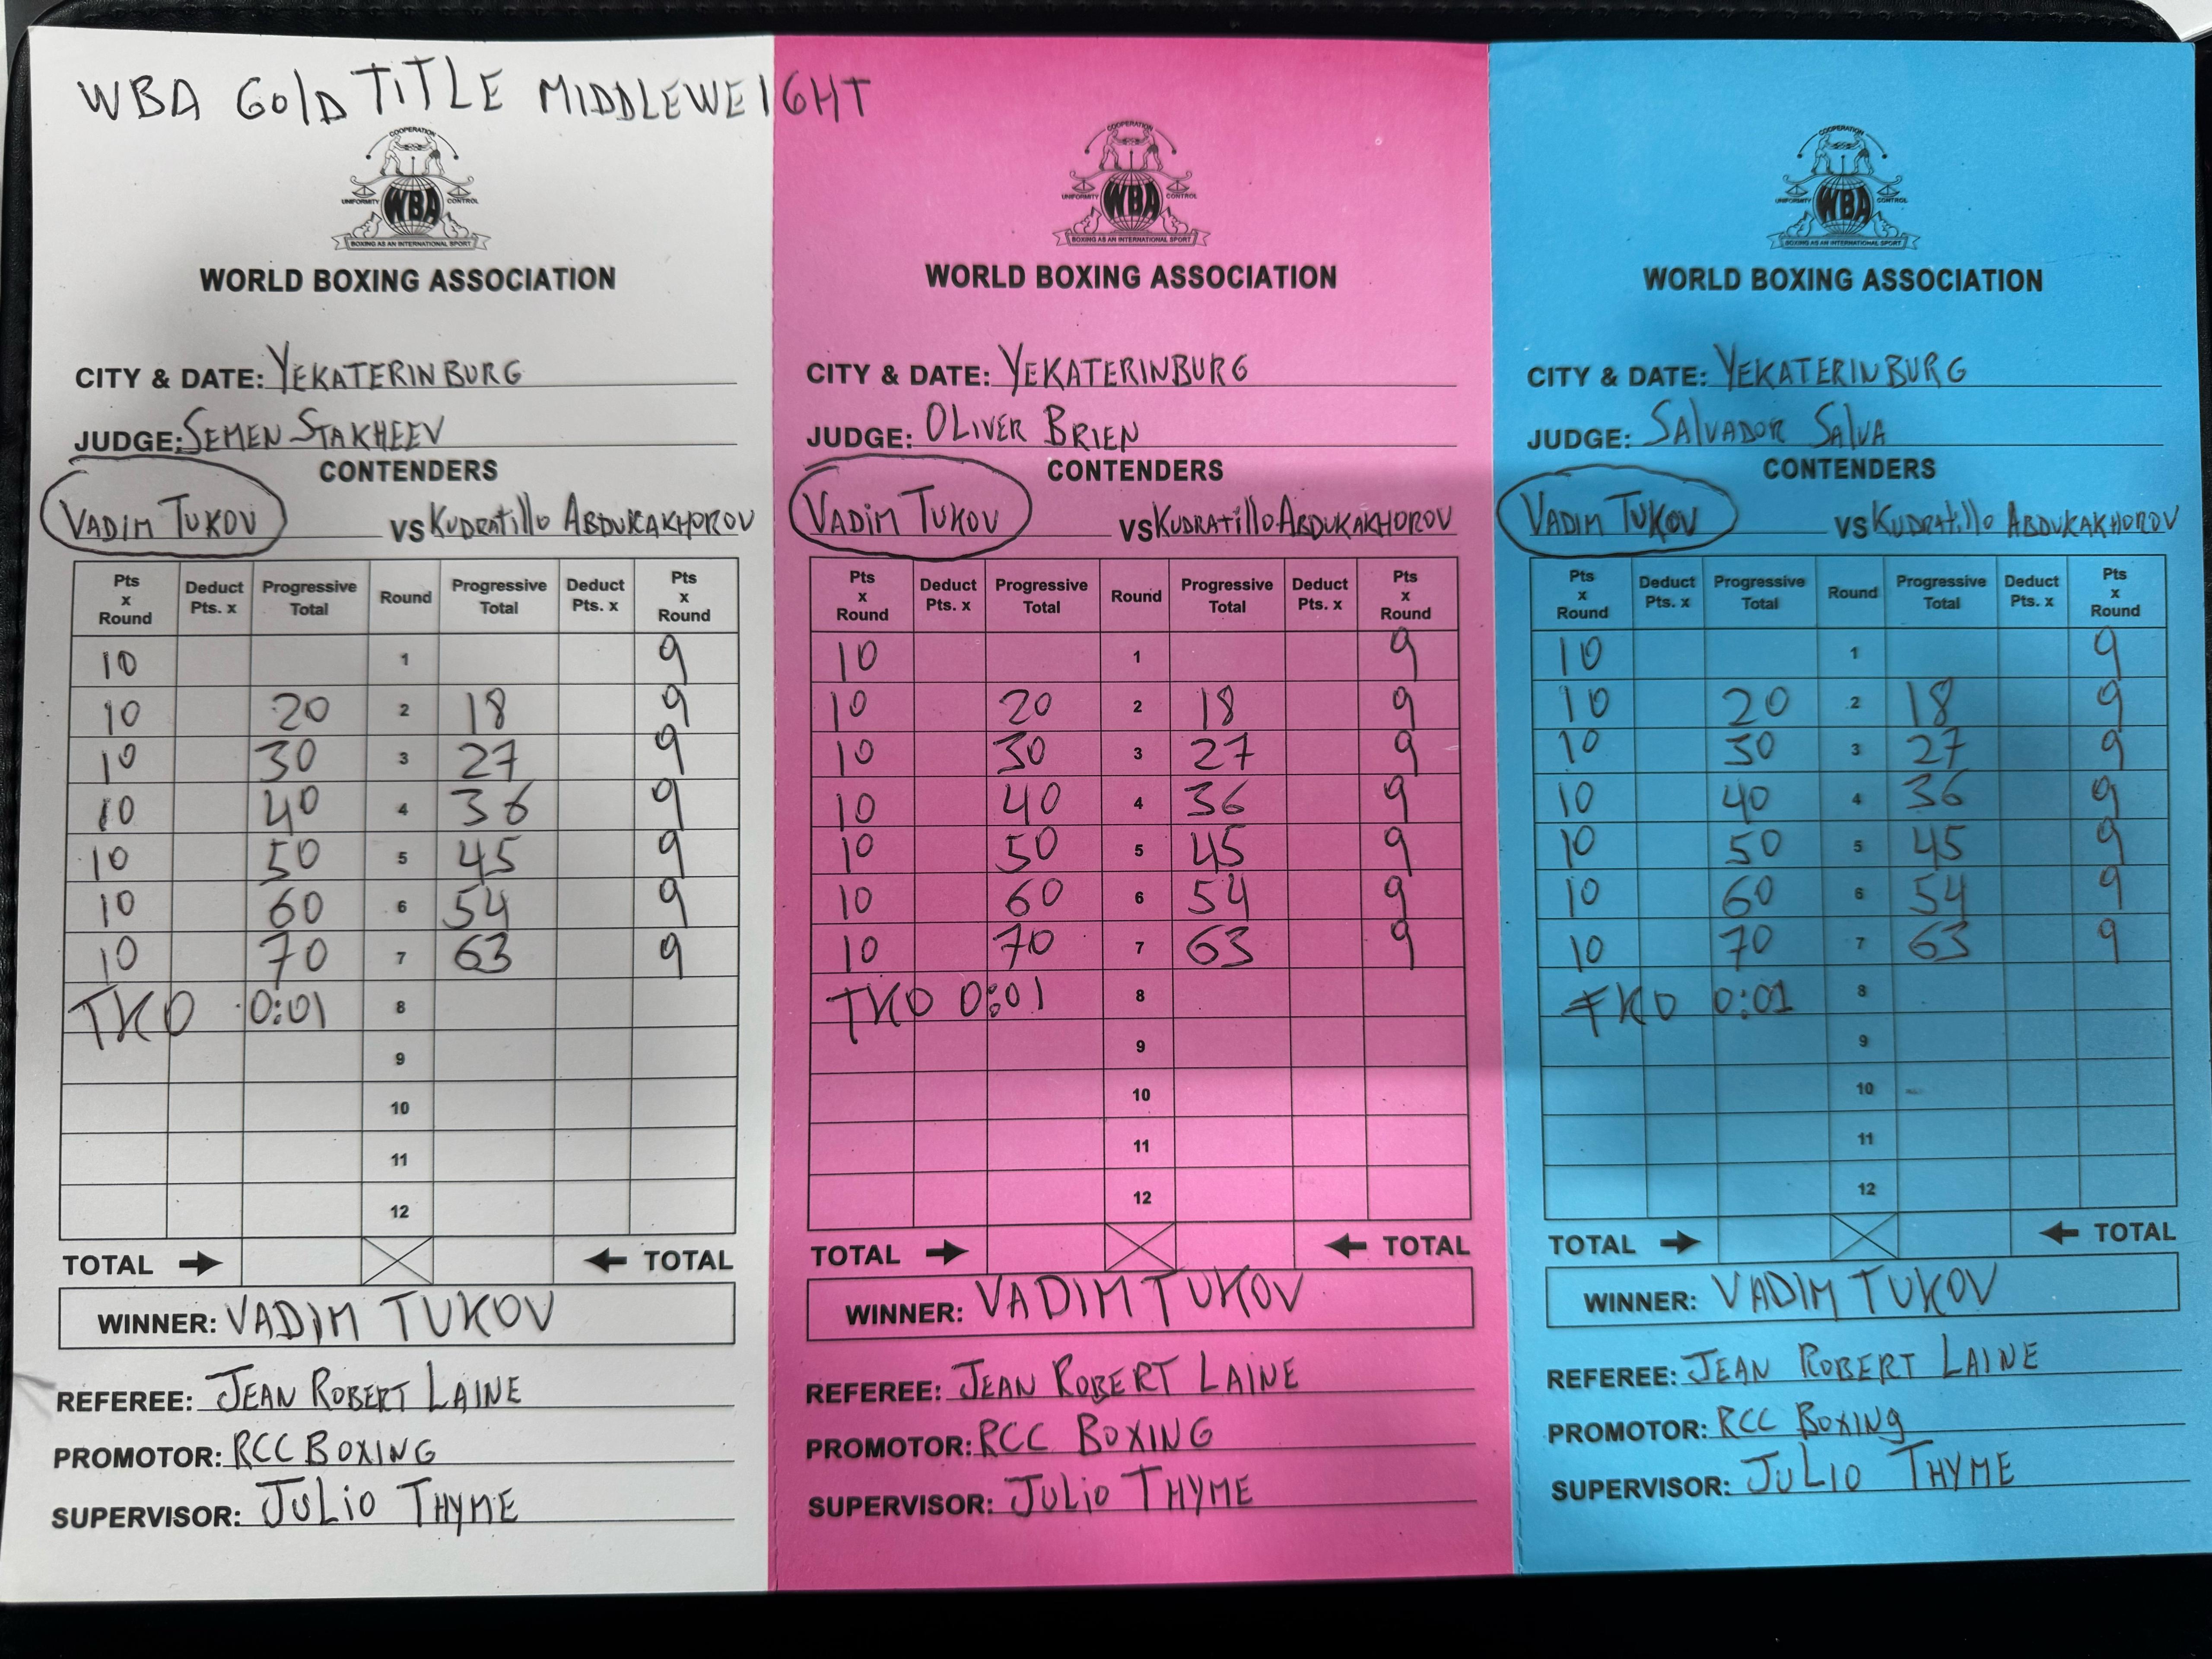 WBA GOLD TITLE MIDDLEWEIGHT
COOPERATION
UNIFORMITY WBA CONTROL
BOXING AS AN INTERNATIONAL SPORT
WORLD BOXING ASSOCIATION
CITY & DATE: YEKATERINBURG
JUDGE: SEMEN STAKHEEV
CONTENDERS
VADIM TUKOV VS KUDRATILLO ABDUKAKHOROV
Pts x Round Deduct Pts. x Progressive Total Round Progressive Total Deduct Pts. x Pts x Round
10 1 9
10 20 2 18 9
10 30 3 27 9
10 40 4 36 9
10 50 5 45 9
10 60 6 54 9
10 70 7 63 9
TKO 0:01 8
9
10
11
12
TOTAL → ← TOTAL
WINNER: VADIM TUKOV
REFEREE: JEAN ROBERT LAINE
PROMOTOR: RCC BOXING
SUPERVISOR: JULIO THYME
COOPERATION
UNIFORMITY WBA CONTROL
BOXING AS AN INTERNATIONAL SPORT
WORLD BOXING ASSOCIATION
CITY & DATE: YEKATERINBURG
JUDGE: OLIVER BRIEN
CONTENDERS
VADIM TUKOV VS KUDRATILLO ABDUKAKHOROV
Pts x Round Deduct Pts. x Progressive Total Round Progressive Total Deduct Pts. x Pts x Round
10 1 9
10 20 2 18 9
10 30 3 27 9
10 40 4 36 9
10 50 5 45 9
10 60 6 54 9
10 70 7 63 9
TKO 0:01 8
9
10
11
12
TOTAL → ← TOTAL
WINNER: VADIM TUKOV
REFEREE: JEAN ROBERT LAINE
PROMOTOR: RCC BOXING
SUPERVISOR: JULIO THYME
COOPERATION
UNIFORMITY WBA CONTROL
BOXING AS AN INTERNATIONAL SPORT
WORLD BOXING ASSOCIATION
CITY & DATE: YEKATERINBURG
JUDGE: SALVADOR SALVA
CONTENDERS
VADIM TUKOV VS KUDRATILLO ABDUKAKHOROV
Pts x Round Deduct Pts. x Progressive Total Round Progressive Total Deduct Pts. x Pts x Round
10 1 9
10 20 2 18 9
10 30 3 27 9
10 40 4 36 9
10 50 5 45 9
10 60 6 54 9
10 70 7 63 9
TKO 0:01 8
9
10
11
12
TOTAL → ← TOTAL
WINNER: VADIM TUKOV
REFEREE: JEAN ROBERT LAINE
PROMOTOR: RCC BOXING
SUPERVISOR: JULIO THYME